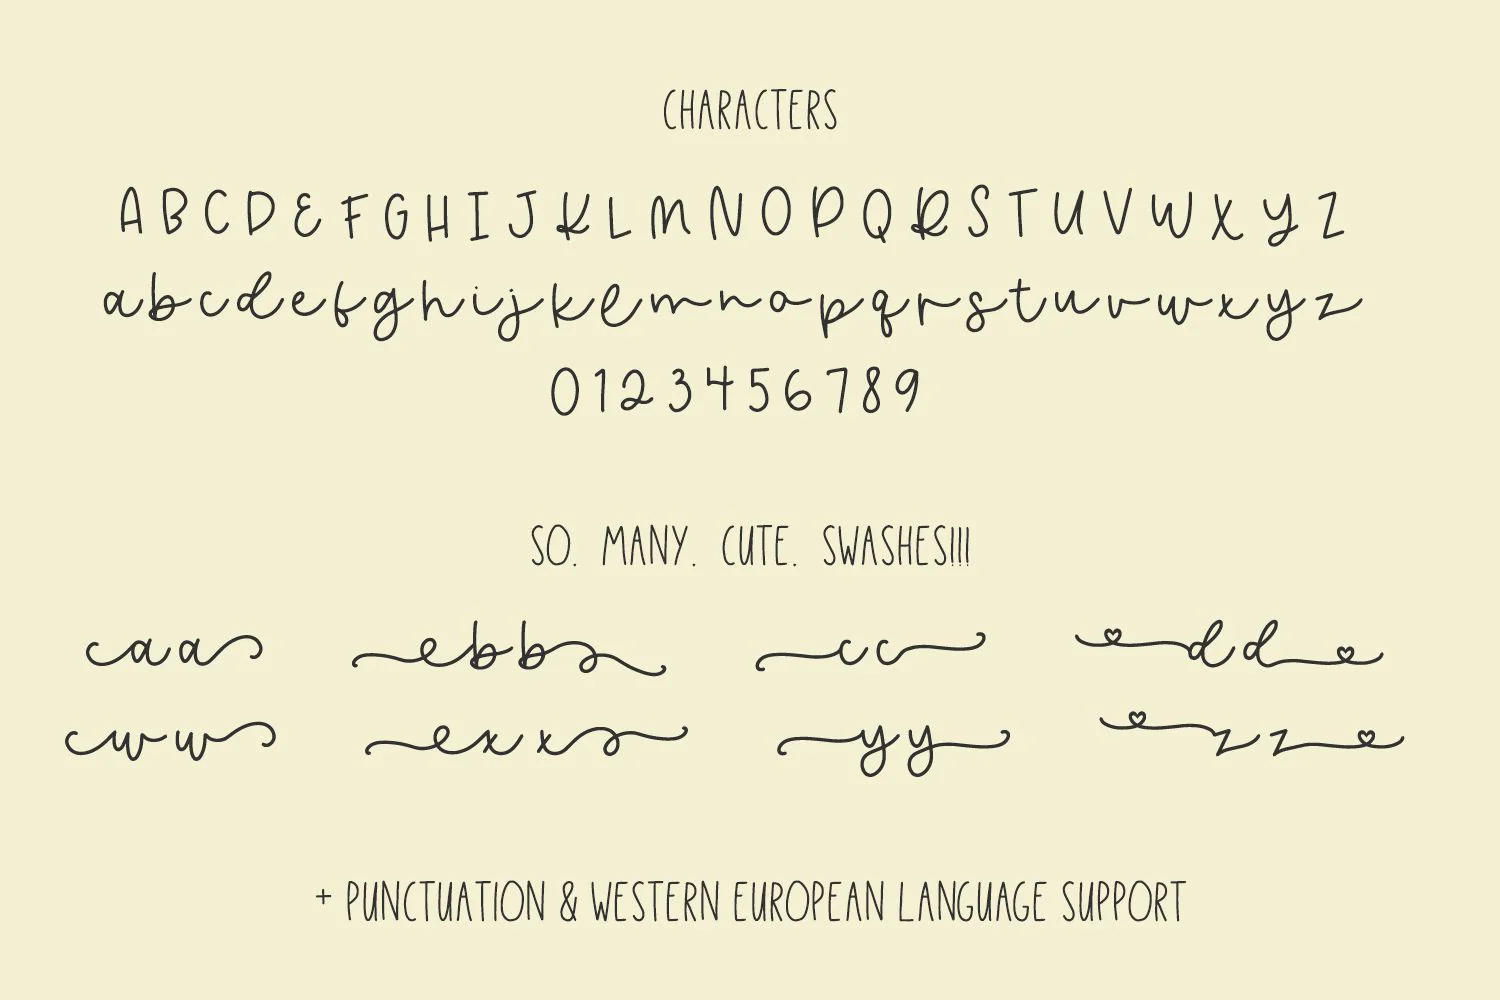 CHARACTERS
A B C D E F G H I J K L M N O P Q R S T U V W X Y Z
a b c d e f g h i j k l m n o p q r s t u v w x y z
0 1 2 3 4 5 6 7 8 9
SO. MANY. CUTE. SWASHES!!!
aa bb cc dd
ww xx yy zz
+ PUNCTUATION & WESTERN EUROPEAN LANGUAGE SUPPORT